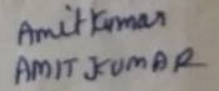 Amit Kumar
AMIT KUMAR